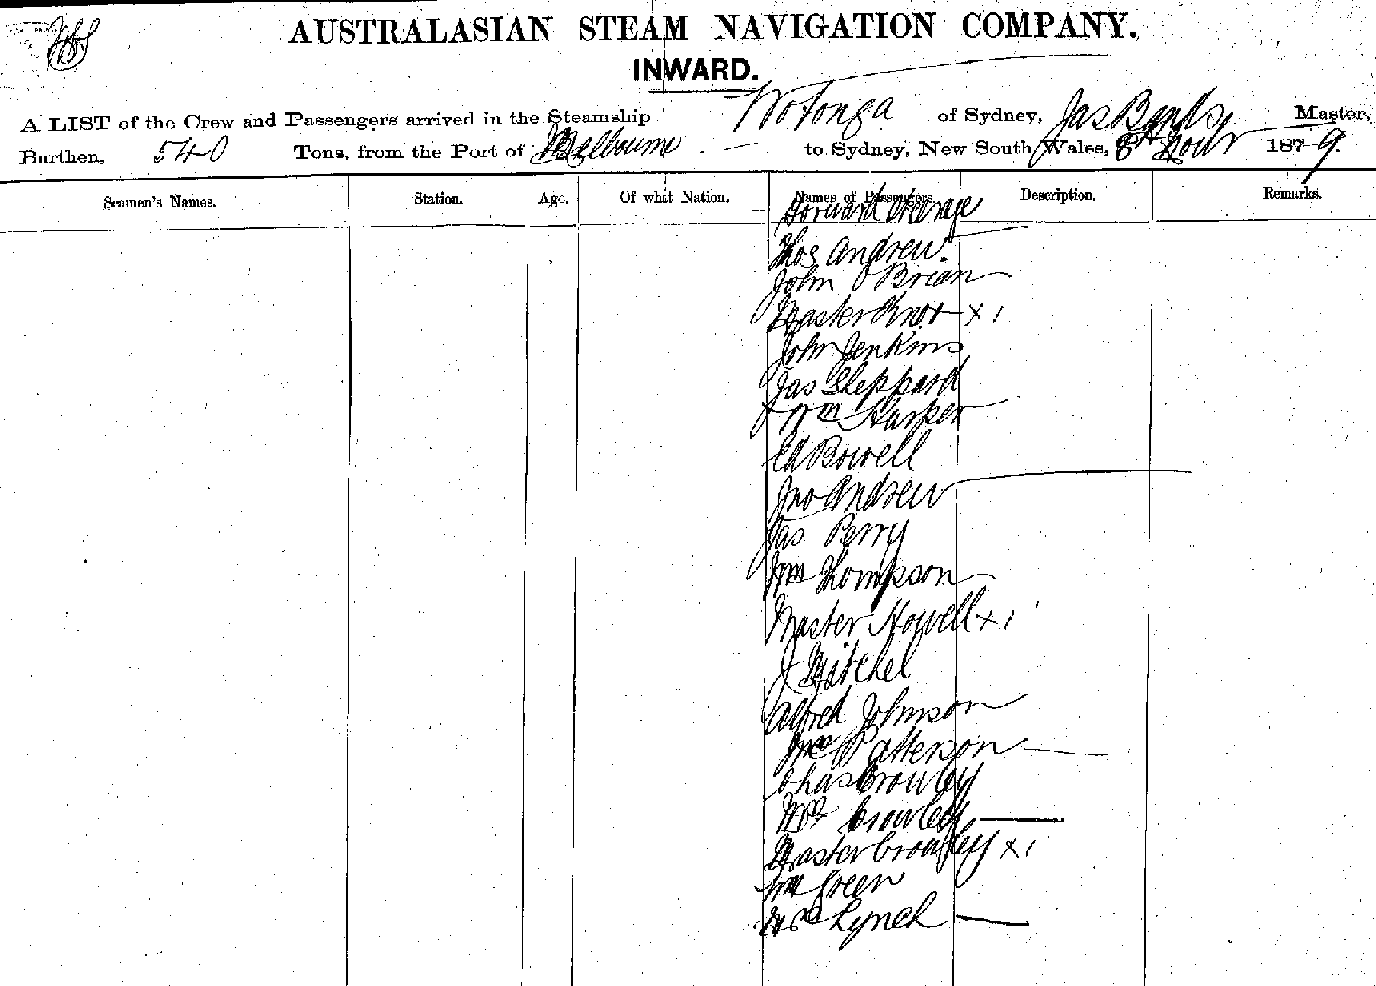 AUSTRALASIAN STEAM NAVIGATION COMPANY.
INWARD.
A LIST of the Crew and Passengers arrived in the Steamship Wotonga of Sydney, Jas Banks Master,
Burthen, 540 Tons, from the Port of Melbourne to Sydney, New South Wales, 8th Novr 1879.
Seamen's Names. Station. Age. Of what Nation. Names of Passengers. Description. Remarks.
Forward Steerage
Thos Andrew
John O'Brian
Master x 1
John Jenkins
Jas Sheppard
Wm Harper
Ed Bowell
Jno Andrew
Jas Perry
Wm Thompson
Master Howell x 1
J Mitchel
Alfred Johnson
Patterson
Chas Crowley
Mrs Crowley
Master Crowley x 1
Wm Green
Lynch